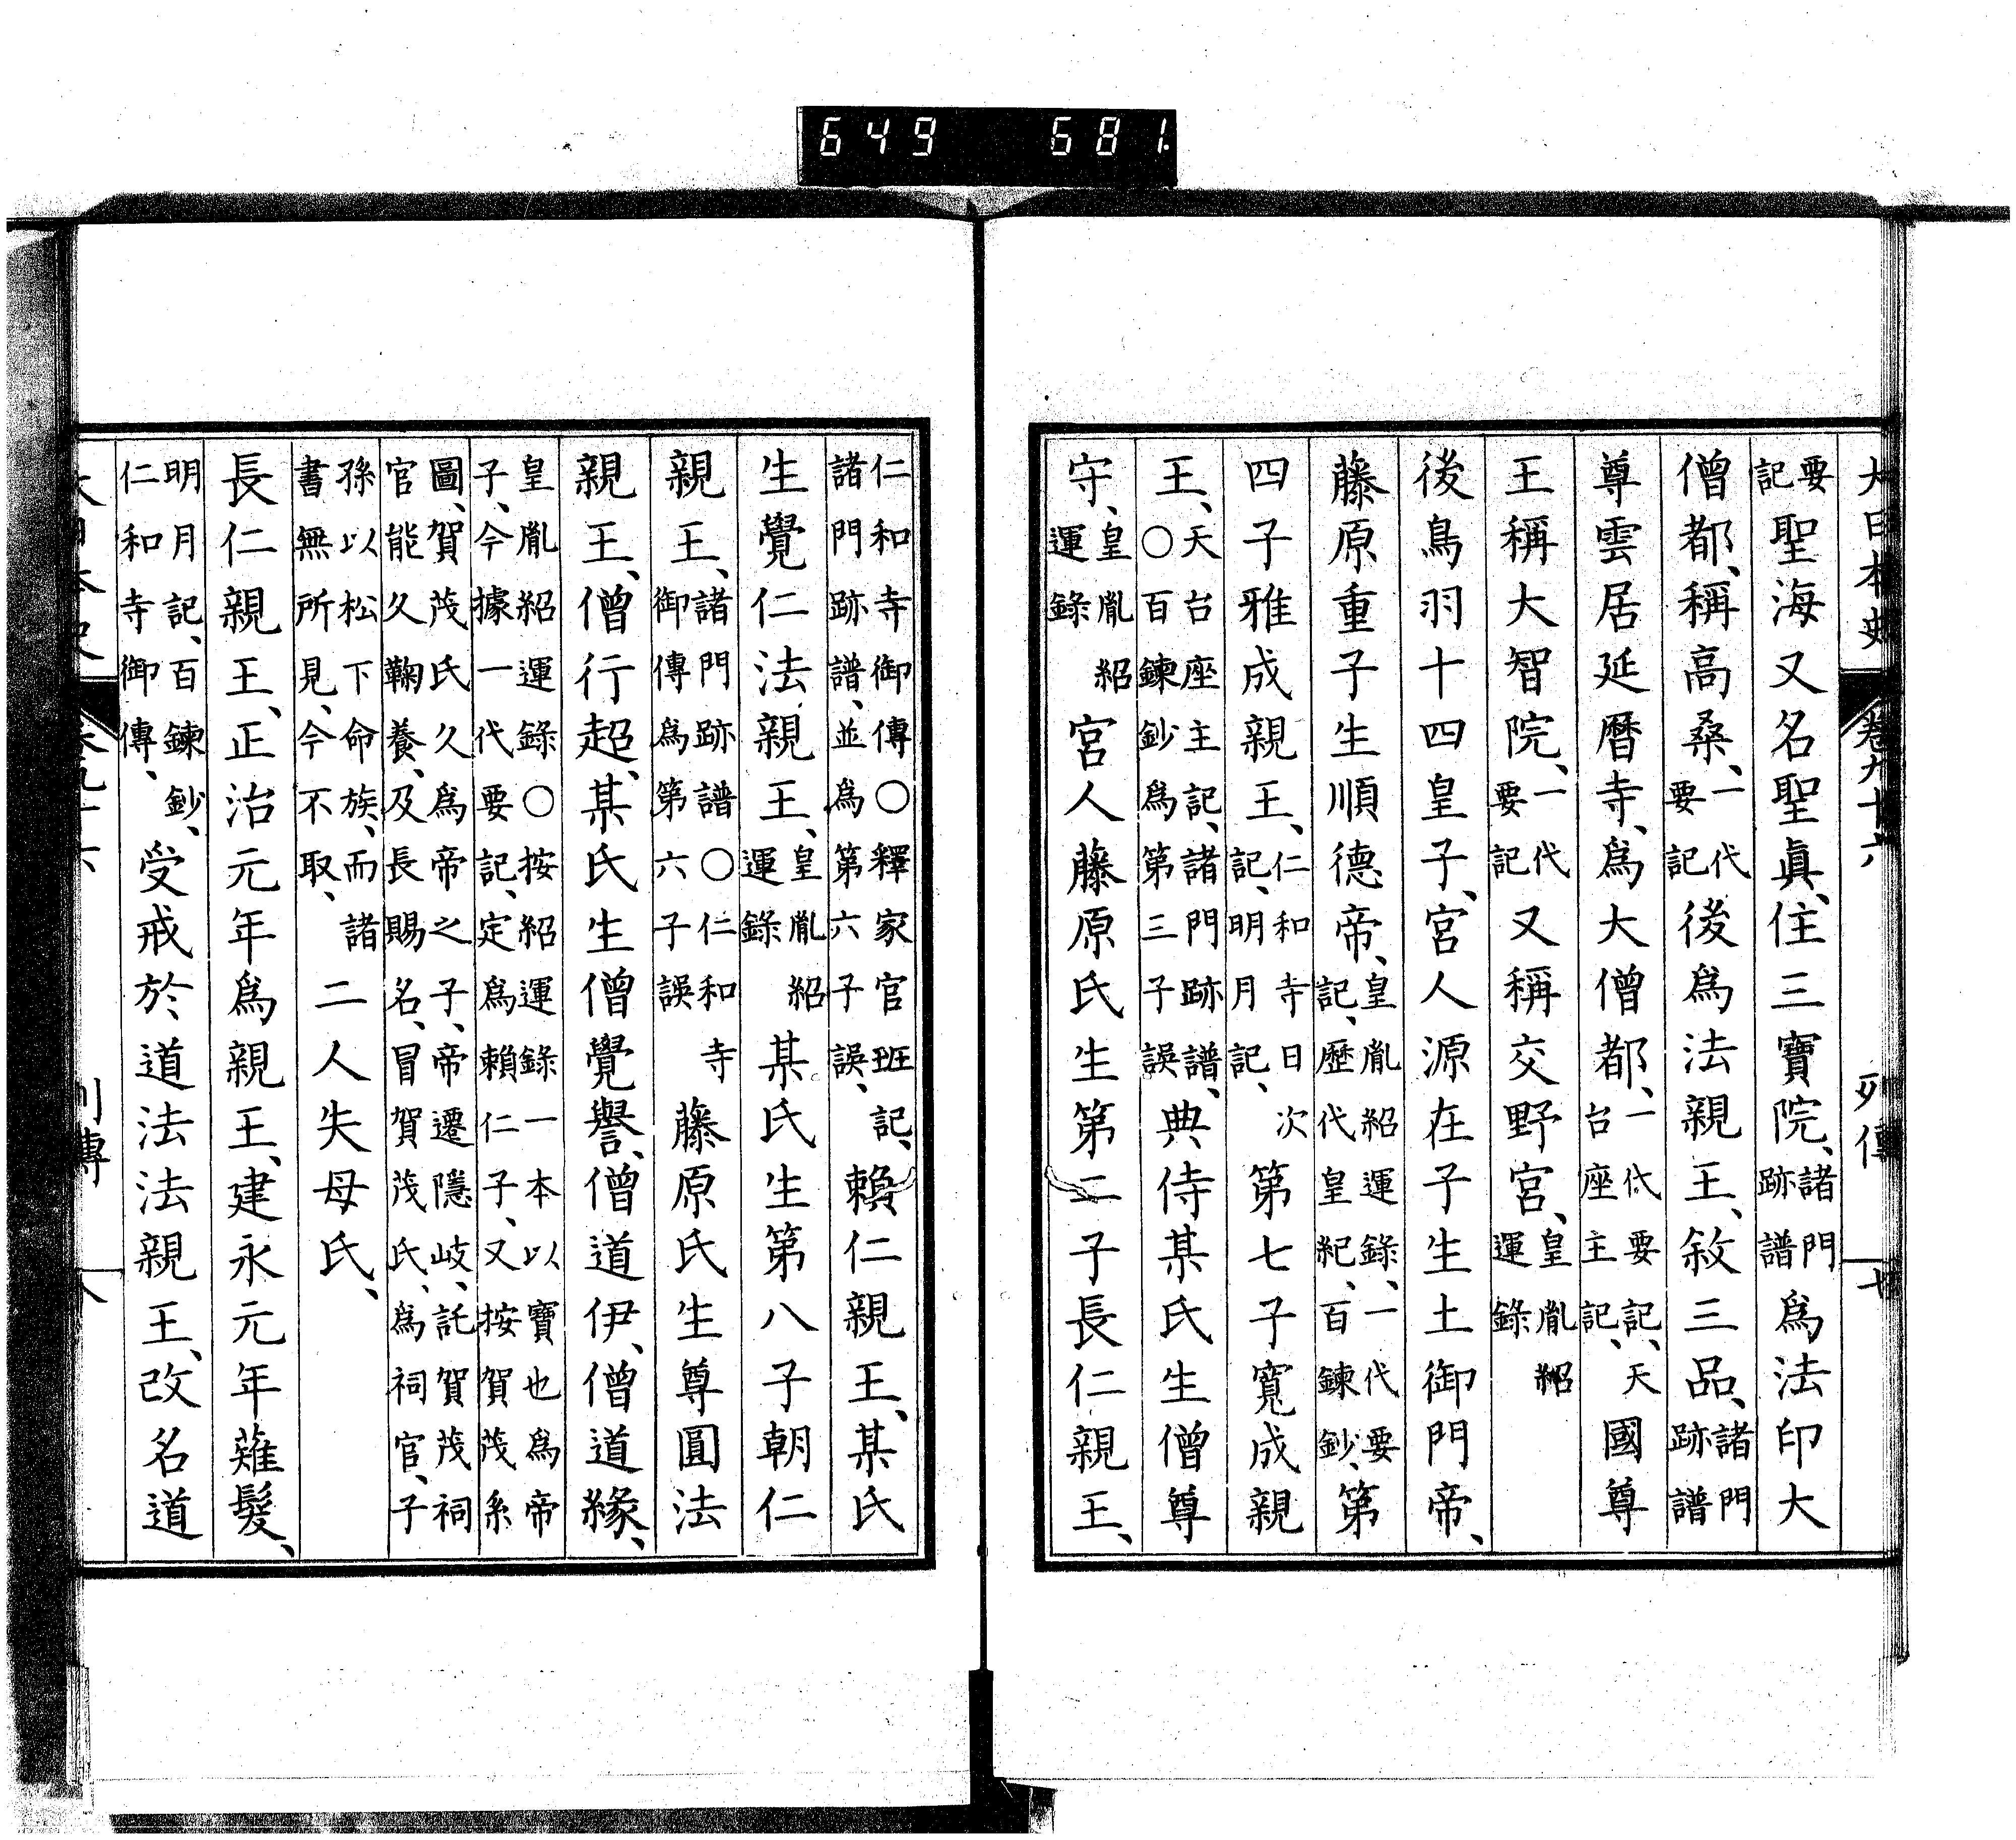 649 681.
大日本史 卷九十六 列傳 七
要記聖海又名聖眞、住三寶院、諸門跡譜爲法印大
僧都、稱高桑、一代要記後爲法親王、敘三品、諸門跡譜
尊雲居延曆寺、爲大僧都、一代要記、天台座主記、國尊
王稱大智院、一代要記又稱交野宮、皇胤紹運錄
後鳥羽十四皇子、宮人源在子生土御門帝、
藤原重子生順德帝、皇胤紹運錄、一代要記、歷代皇紀、百鍊鈔、第
四子雅成親王、仁和寺日次記、明月記、第七子寬成親
王、天台座主記、諸門跡譜、○百鍊鈔爲第三子誤典侍某氏生僧尊
守、皇胤紹運錄宮人藤原氏生第二子長仁親王、
仁和寺御傳○釋家官班記、諸門跡譜、並爲第六子誤、賴仁親王、某氏
生覺仁法親王、皇胤紹運錄某氏生第八子朝仁
親王、諸門跡譜○仁和寺御傳爲第六子誤藤原氏生尊圓法
親王、僧行超、某氏生僧覺譽、僧道伊、僧道緣、
皇胤紹運錄○按紹運錄一本以寶也爲帝子、今據一代要記、定爲賴仁子、又按賀茂系
圖、賀茂氏久爲帝之子、帝遷隱岐、託賀茂祠官能久鞠養、及長賜名、冒賀茂氏、爲祠官、子
孫以松下命族、而諸書無所見、今不取、二人失母氏、
長仁親王、正治元年爲親王、建永元年薙髮、
明月記、百鍊鈔、仁和寺御傳、受戒於道法法親王、改名道
大日本史 卷九十六 列傳 八